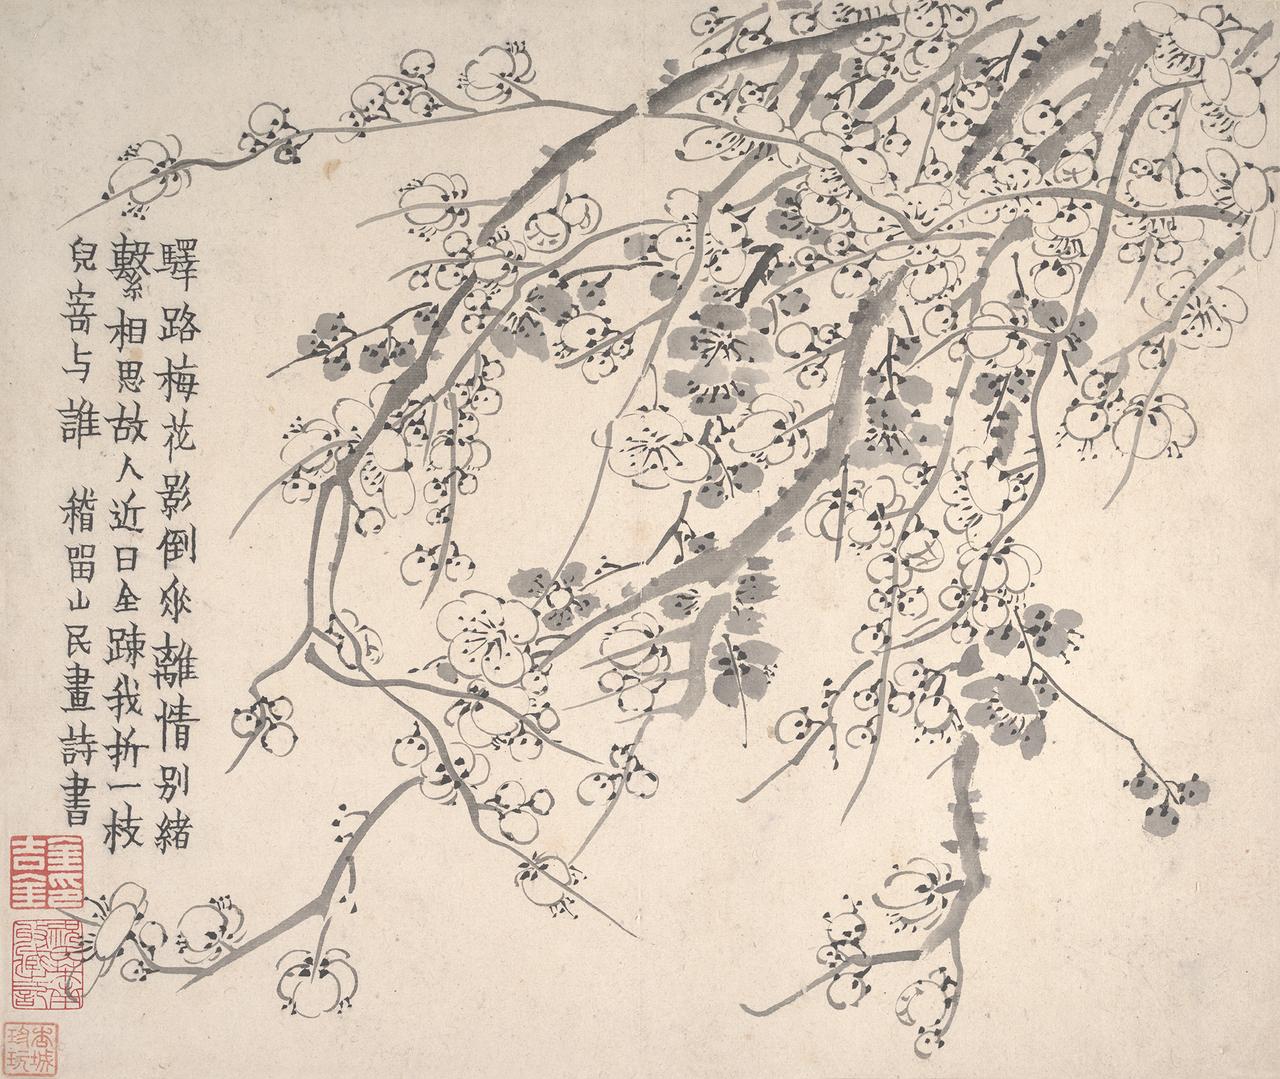 驛路梅花影倒垂離情別緒
繫相思故人近日全疎我折一枝
兒寄与誰　稽留山民畫詩書
金吉金印
杏城珍玩